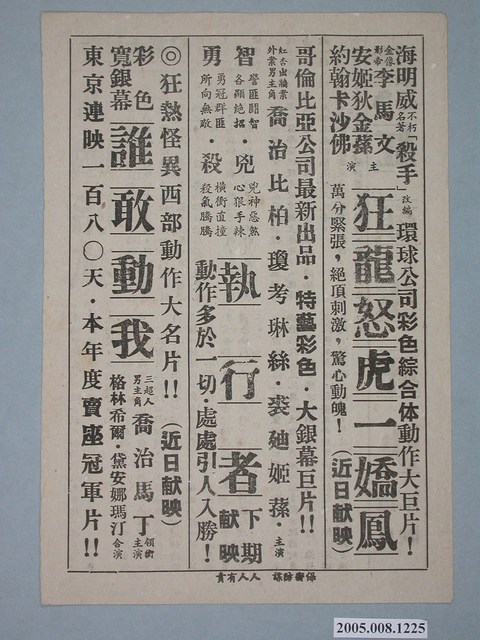 海明威不朽名著「殺手」改編 環球公司彩色綜合体動作大巨片！
金像影帝 李馬文
安姬狄金蓀
約翰卡沙佛 主演
狂龍怒虎一嬌鳳
萬分緊張，絕頂刺激，驚心動魄！（近日献映）
哥倫比亞公司最新出品・特藝彩色・大銀幕巨片！！
紅杏出牆案外案男主角 喬治比柏・瓊考琳絲・裘廸姬蓀・主演
智 警匪鬪智 各顯絕招・兇 兇神惡煞 心狠手辣
勇 勇冠群匪 所向無敵・殺 橫衝直撞 殺氣騰騰
執行者 下期献映
動作多於一切・處處引人入勝！
◎狂熱怪異西部動作大名片！！（近日献映）
彩色寬銀幕 誰敢動我
三超人男主角 喬治馬丁 領銜主演
格林希爾・黛安娜瑪汀 合演
東京連映一百八〇天・本年度賣座冠軍片！！
保密防諜 人人有責
2005.008.1225